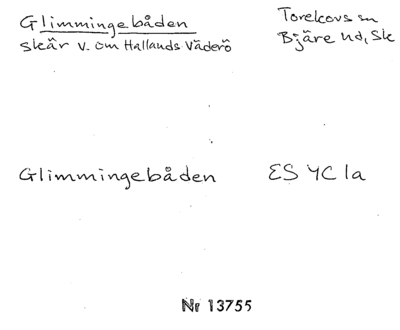 Glimmingebåden
Torekovs sn
skär v. om Hallands Väderö
Bjäre hd, Sk
Glimmingebåden
ES 4C 1a
Nr 13755